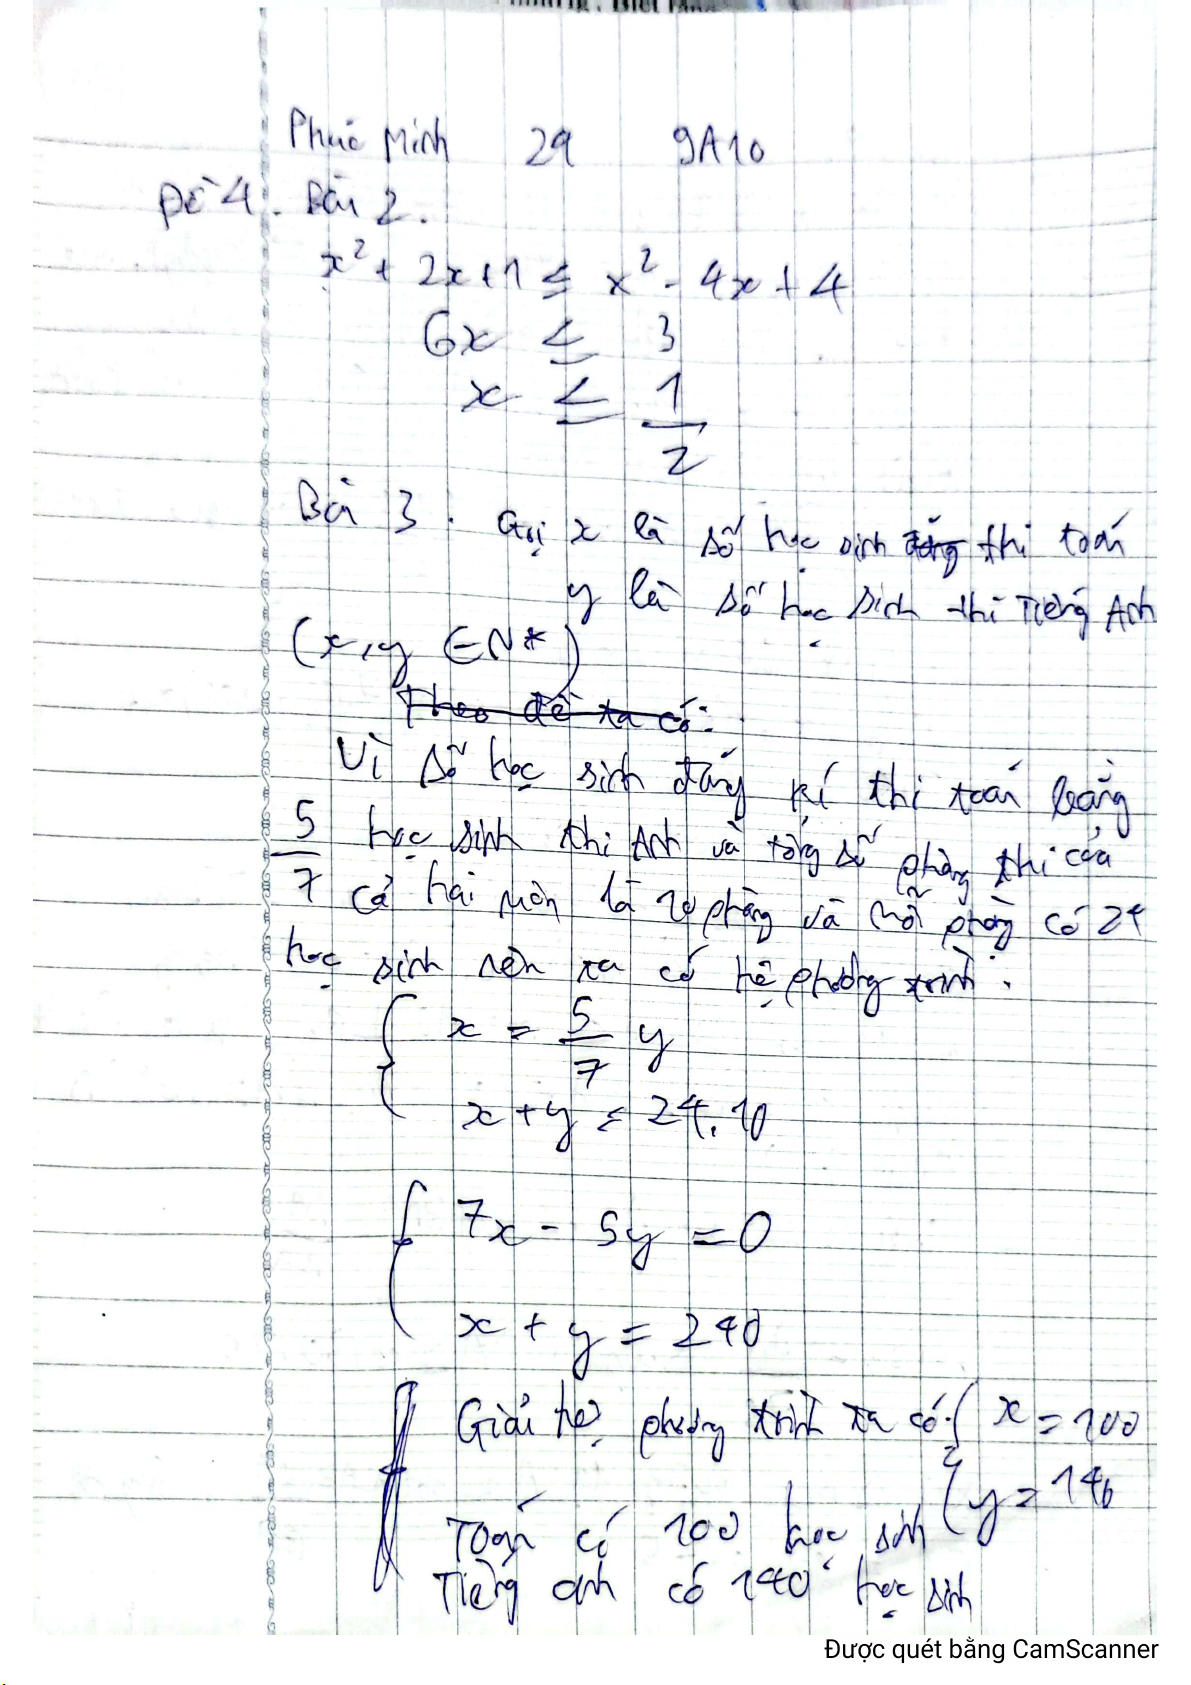 Phúc Minh 29 9A10
Đề 4. Bài 2.
x² + 2x + 1 ≤ x² - 4x + 4
6x ≤ 3
x ≤ 1/2
Bài 3. Gọi x là số học sinh đăng thi toán
y là số học sinh thi Tiếng Anh
(x, y ∈ N*)
Theo đề ta có:
Vì số học sinh đăng kí thi toán bằng
5/7 học sinh thi Anh và tổng số phòng thi của
cả hai môn là 10 phòng và mỗi phòng có 24
học sinh nên ta có hệ phương trình:
{ x = 5/7 y
x + y = 24.10
{ 7x - 5y = 0
x + y = 240
Giải hệ phương trình ta có: { x = 100
y = 140
Toán có 100 học sinh
Tiếng anh có 140 học sinh
Được quét bằng CamScanner